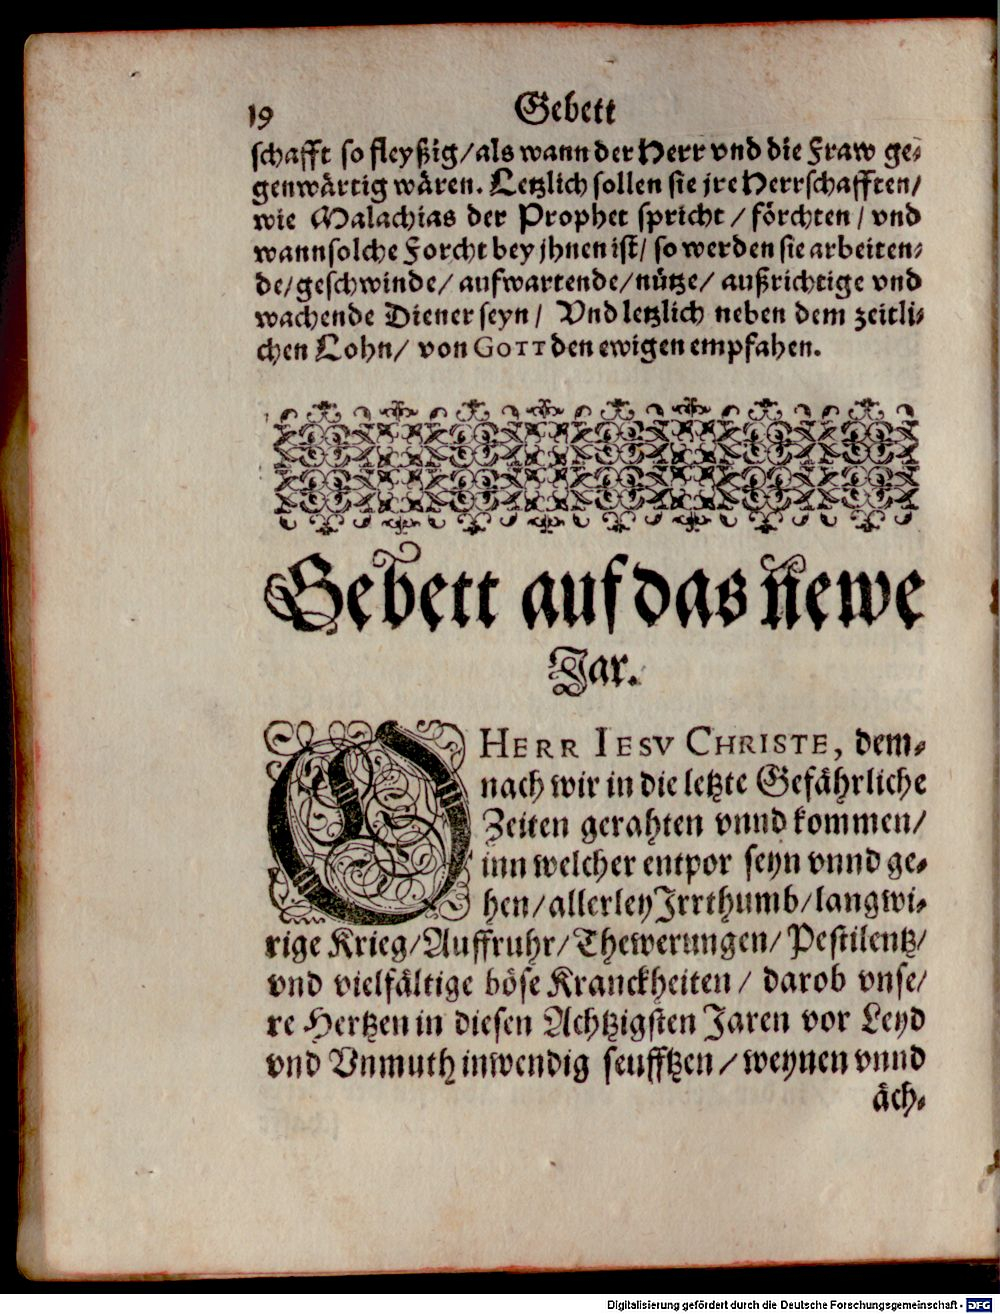 19 Gebett
schafft so fleyßig/als wann der Herr vnd die Fraw ge-
genwärtig wären. Letzlich sollen sie jre Herrschafften/
wie Malachias der Prophet spricht / förchten / vnd
wann solche Forcht bey jhnen ist/ so werden sie arbeiten-
de/geschwinde/ aufwartende/nütze/ außrichtige vnd
wachende Diener seyn/ Vnd letzlich neben dem zeitli-
chen Lohn/ von GOTT den ewigen empfahen.
Gebett auf das newe
Jar.
O HERR IESV CHRISTE, dem-
nach wir in die letzte Gefährliche
Zeiten gerahten vnnd kommen/
inn welcher entpor seyn vnnd ge-
hen/allerley Jrrthumb/langwi-
rige Krieg/Auffruhr/Thewerungen/Pestilentz/
vnd vielfältige böse Kranckheiten/ darob vnse/
re Hertzen in diesen Achtzigsten Jaren vor Leyd
vnd Vnmuth inwendig seufftzen/weynen vnnd
äch-
Digitalisierung gefördert durch die Deutsche Forschungsgemeinschaft - DFG